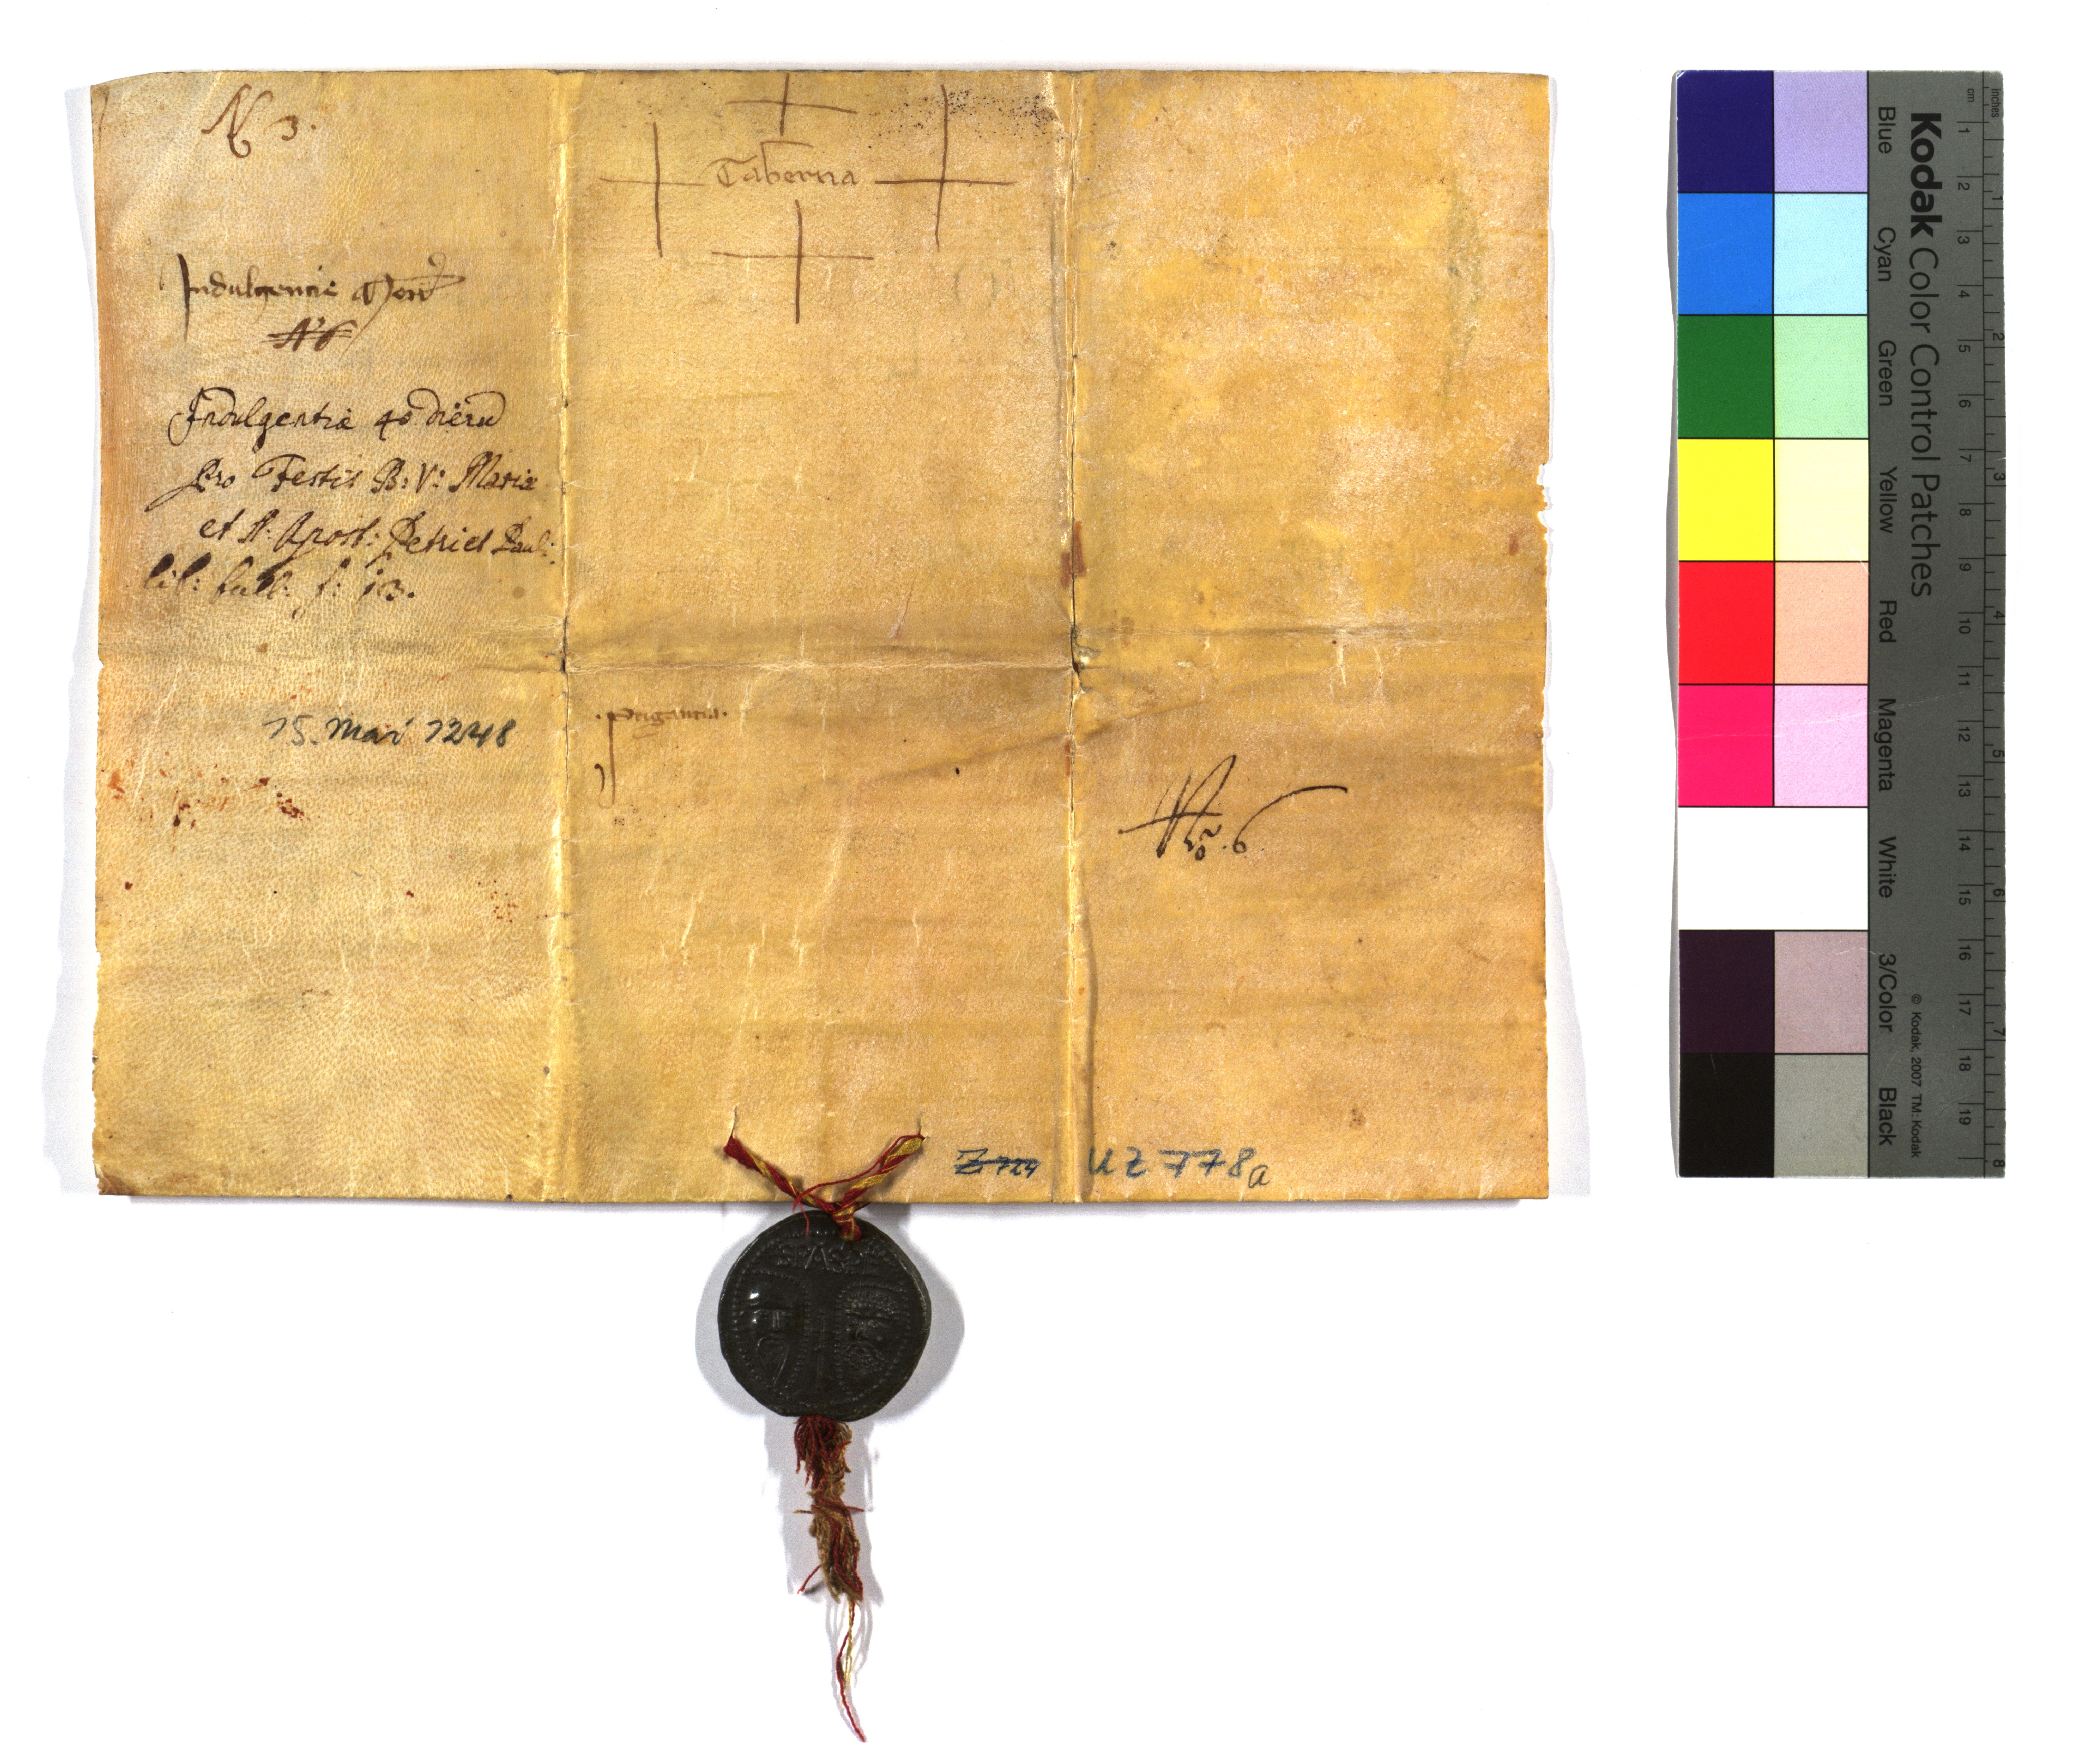 N 3.
Taberna
Indulgencie
N° 6
Indulgentiæ 40 dierũ
pro Festis B: V: Mariæ
et S: Apost: Petri et Pauli
f: 13.
15. Mai 1248
Nrõ. 6
Z 724 UZ 778a
SPASPE
Kodak Color Control Patches
Blue Cyan Green Yellow Red Magenta White 3/Color Black
© Kodak, 2007 TM: Kodak
inches 1 2 3 4 5 6 7 8
cm 1 2 3 4 5 6 7 8 9 10 11 12 13 14 15 16 17 18 19